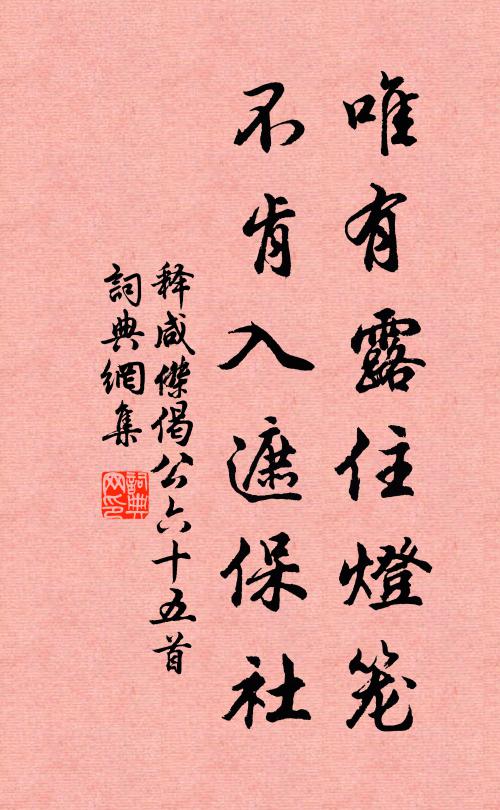 唯有露住燈笼
不肯入遮保社
释咸傑偈公六十五首
詞典網集
詞典网印